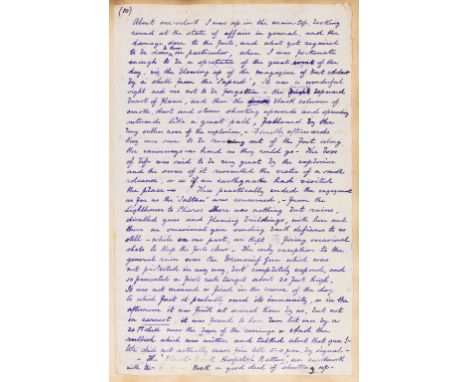 (10)
About one o'clock I was up in the main top looking
round at the state of affairs in general, and the
damage done to the forts, and what yet required
to be done in particular, when I was fortunate
enough to be a spectator of the great event of the
day, viz the blowing up of the magazine of Fort
by a shell from the "Superb", It was a wonderful
sight and one not to be forgotten - the upward
burst of flame, and then the black column of
smoke dust and steam shooting upwards and spreading
outwards like a great pall, followed by the
outer roar of the explosion, - Directly afterwards
they were seen to be running out of the fort along
the causeways as hard as they could go - The loss
of life was said to be very great by the explosion
and the scene of it resembled the crater of a small
volcano, or as if an earthquake had visited
the place - This practically ended the engagement
as far as the "Sultan" was concerned, - From the
Lighthouse to Pharos there was nothing but ruins,
disabled guns and flaming buildings, with here and
there an occasional gun sending back defiance to us
still - while on our part, we kept firing occasional
shots to keep the forts clear - The only exception to the
general ruin was the Moncrieff Gun which was
not protected in any way, but completely exposed, and
so presented a first rate target about 20 feet high,
It was not manned or fired in the course of the day
to which fact it probably owed its immunity, as in the
afternoon it was fired at several times by us, but not
in earnest it was found to have been hit once by a
20 Pr shell near the rear of the carriage - And the
rubbish which was written and talked about that gun!-
We did not actually cease fire till 5-0 pm by signal -
- The Hospital Battery, an earthwork
with took a good deal of shutting up -